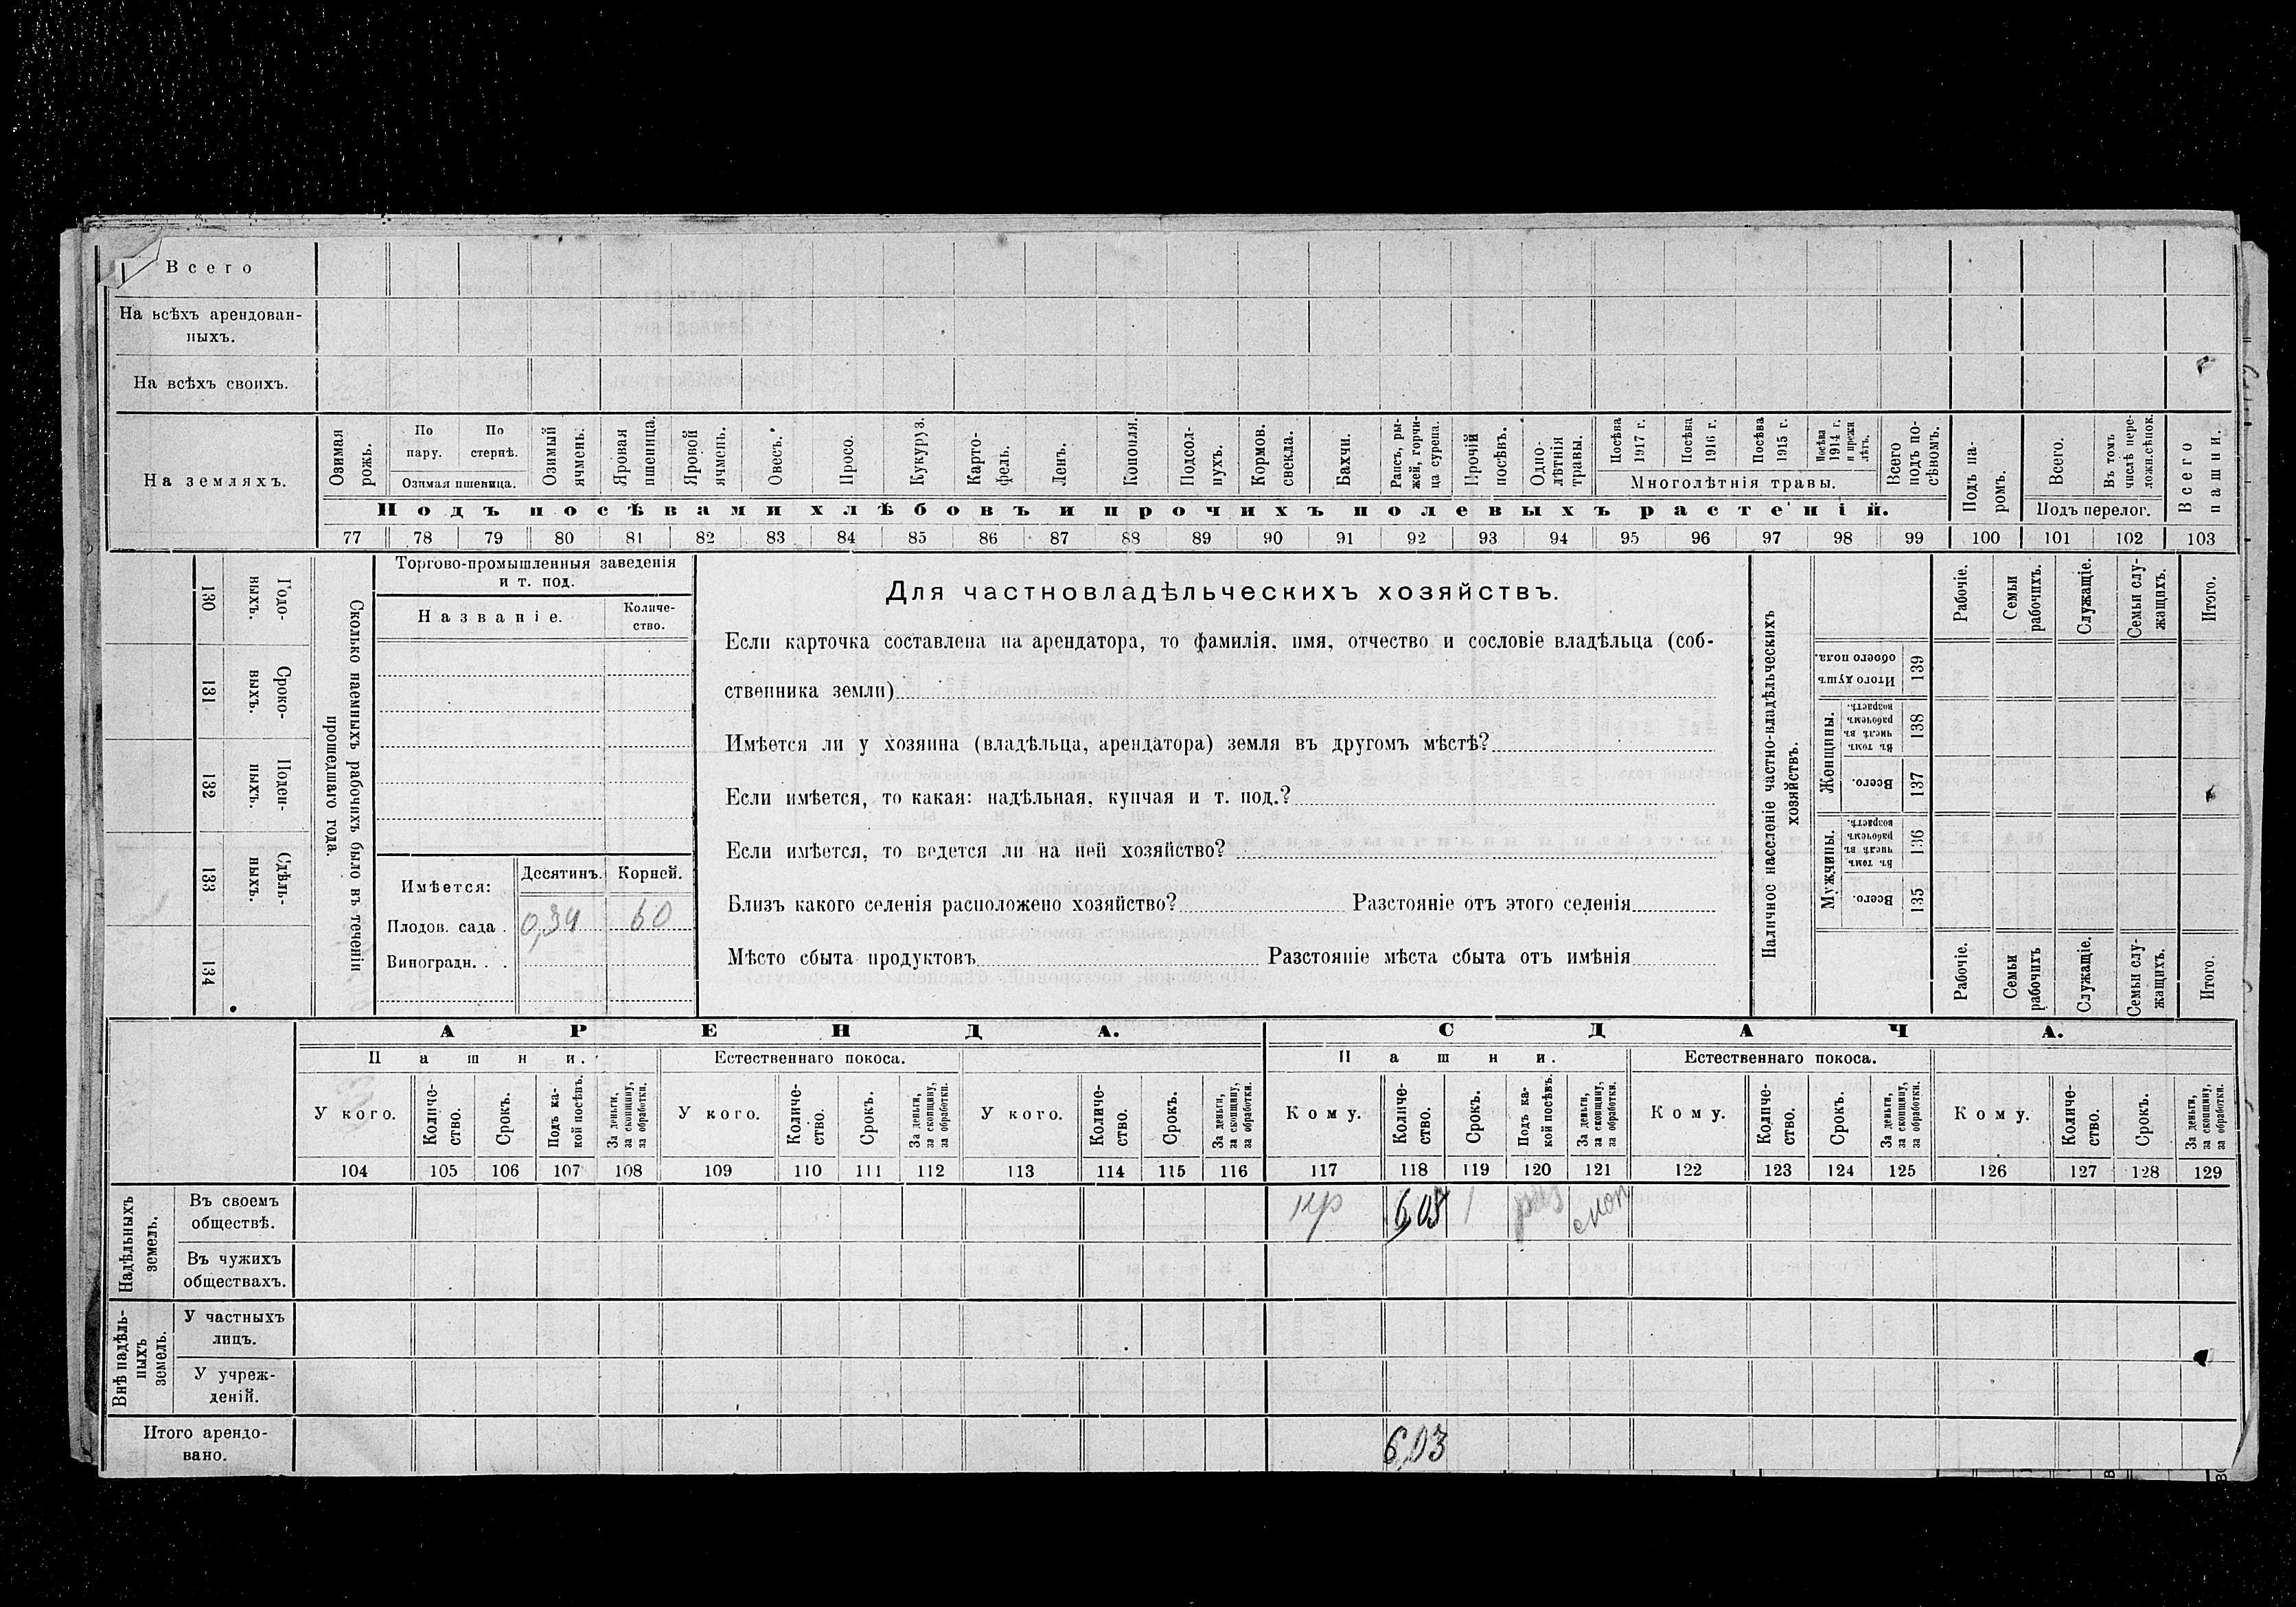 Всего
На всѣхъ арендован-
ныхъ.
На всѣхъ своихъ.
На земляхъ.
Озимая рожь.
По пару.
По стернѣ.
Озимая пшеница.
Озимый ячмень.
Яровая пшеница.
Яровой ячмень.
Овесъ.
Просо.
Кукуруз.
Карто-
фель.
Ленъ.
Конопля.
Подсол-
нухъ.
Кормов.
свекла.
Бахчи.
Рапсъ, ры-
жей, горчи-
ца сурепа.
Прочій
посѣвъ.
Одно-
лѣтнія
травы.
Посѣва
1917 г.
Посѣва
1916 г.
Посѣва
1915 г.
Посѣва
1914 г.
и прежн
лѣтъ.
Многолѣтнія травы.
Всего
подъ по-
сѣвомъ.
Подъ па-
ромъ.
Всего.
Въ томъ
числѣ пере-
ложн.сѣнок.
Подъ перелог.
Всего
пашни.
Подъ посѣвами хлѣбовъ и прочихъ полевыхъ растеній.
77 78 79 80 81 82 83 84 85 86 87 88 89 90 91 92 93 94 95 96 97 98 99 100 101 102 103
130
Годо-
выхъ.
131
Сроко-
выхъ.
132
Поден-
ныхъ.
133
Сдѣль-
ныхъ.
134
Сколько наемныхъ рабочихъ было въ теченіи
прошедшаго года.
Торгово-промышленныя заведенія
и т. под.
Названіе.
Количе-
ство.
Имѣется:
Десятинъ.
Корней.
Плодов. сада . 0,34 60
Виноградн. . .
Для частновладѣльческихъ хозяйствъ.
Если карточка составлена на арендатора, то фамилія, имя, отчество и сословіе владѣльца (соб-
ственника земли)
Имѣется ли у хозяина (владѣльца, арендатора) земля въ другомъ мѣстѣ?
Если имѣется, то какая: надѣльная, купчая и т. под.?
Если имѣется, то ведется ли на ней хозяйство?
Близъ какого селенія расположено хозяйство? Разстояніе отъ этого селенія
Мѣсто сбыта продуктовъ Разстояніе мѣста сбыта отъ имѣнія
Наличное населеніе частно-владѣльческихъ
хозяйствъ.
Рабочіе.
Семьи
рабочихъ.
Служащіе.
Семьи слу-
жащихъ.
Итого.
Итого душъ
обоего пола.
139
Женщины.
Въ томъ
числѣ въ
рабочемъ
возрастѣ.
138
Всего.
137
Мужчины.
Въ томъ
числѣ въ
рабочемъ
возрастѣ.
136
Всего.
135
Рабочіе.
Семьи
рабочихъ
Служащіе.
Семьи слу-
жащихъ.
Итого.
АРЕНДА.
СДАЧА.
Пашни.
Естественнаго покоса.
Пашни.
Естественнаго покоса.
У кого.
Количе-
ство.
Срокъ.
Подъ ка-
кой посѣвъ.
За деньги,
за скопщину,
за обработки.
У кого.
Количе-
ство.
Срокъ.
За деньги,
за скопщину,
за обработки.
У кого.
Количе-
ство.
Срокъ.
За деньги,
за скопщину,
за обработки.
Кому.
Количе-
ство.
Срокъ.
Подъ ка-
кой посѣвъ.
За деньги,
за скопщину,
за обработки.
Кому.
Количе-
ство.
Срокъ.
За деньги,
за скопщину,
за обработки.
Кому.
Количе-
ство.
Срокъ.
За деньги,
за скопщину,
за обработки.
104 105 106 107 108 109 110 111 112 113 114 115 116 117 118 119 120 121 122 123 124 125 126 127 128 129
Надѣльныхъ
земель.
Въ своемъ
обществѣ.
кр 6,03 1 скоп
Въ чужихъ
обществахъ.
Внѣ надѣль-
ныхъ
земель.
У частныхъ
лицъ.
У учреж-
деній.
Итого арендо-
вано.
6,03